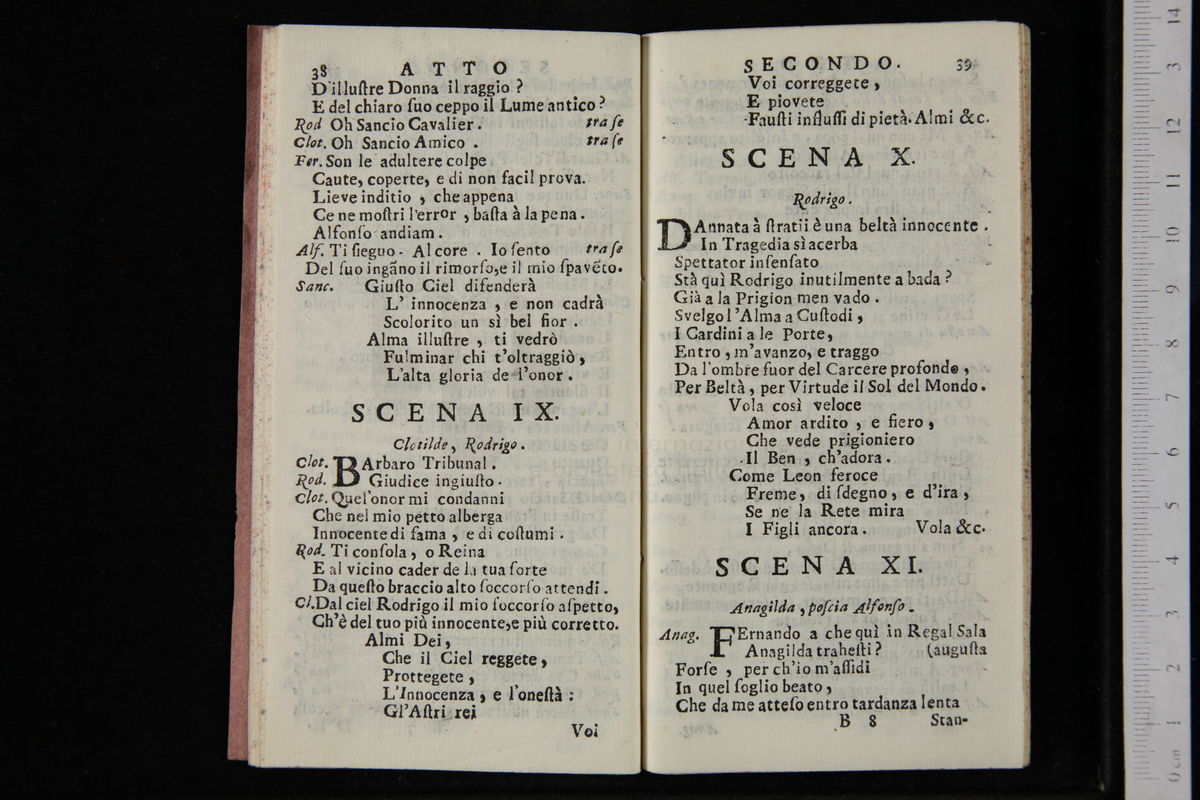 38 ATTO
D'illuſtre Donna il raggio ?
E del chiaro ſuo ceppo il Lume antico ?
Rod Oh Sancio Cavalier. tra ſe
Clot. Oh Sancio Amico . tra ſe
Fer. Son le adultere colpe
Caute, coperte, e di non facil prova.
Lieve inditio , che appena
Ce ne moſtri l'error , baſta à la pena .
Alfonſo andiam.
Alf. Ti ſieguo - Al core . Io ſento tra ſe
Del ſuo ingãno il rimorſo,e il mio ſpavẽto.
Sanc. Giuſto Ciel difenderà
L' innocenza , e non cadrà
Scolorito un sì bel fior .
Alma illuſtre , ti vedrò
Fulminar chi t'oltraggiò ,
L'alta gloria de l'onor .
SCENA IX.
Clotilde, Rodrigo.
Clot. BArbaro Tribunal.
Rod. Giudice ingiuſto.
Clot. Quel'onor mi condanni
Che nel mio petto alberga
Innocente di fama , e di coſtumi .
Rod. Ti conſola , o Reina
E al vicino cader de la tua ſorte
Da queſto braccio alto ſoccorſo attendi .
Cl.Dal ciel Rodrigo il mio ſoccorſo aſpetto,
Ch'è del tuo più innocente,e più corretto.
Almi Dei,
Che il Ciel reggete,
Prottegete ,
L'Innocenza , e l'oneſtà :
Gl'Aſtri rei
Voi
SECONDO. 39
Voi correggete ,
E piovete
Fauſti influſſi di pietà. Almi &c.
SCENA X.
Rodrigo.
DAnnata à ſtratii è una beltà innocente .
In Tragedia sì acerba
Spettator inſenſato
Stà quì Rodrigo inutilmente a bada ?
Già a la Prigion men vado .
Svelgo l'Alma a Cuſtodi ,
I Cardini a le Porte,
Entro , m'avanzo, e traggo
Da l'ombre fuor del Carcere profondo ,
Per Beltà , per Virtude il Sol del Mondo.
Vola così veloce
Amor ardito , e fiero ,
Che vede prigioniero
Il Ben , ch'adora .
Come Leon feroce
Freme, di ſdegno, e d'ira ,
Se ne la Rete mira
I Figli ancora . Vola &c.
SCENA XI.
Anagilda , poſcia Alfonſo .
Anag. FErnando a che quì in Regal Sala
Anagilda traheſti ? (auguſta
Forſe , per ch'io m'aſſidi
In quel ſoglio beato ,
Che da me atteſo entro tardanza lenta
B 8 Stan-